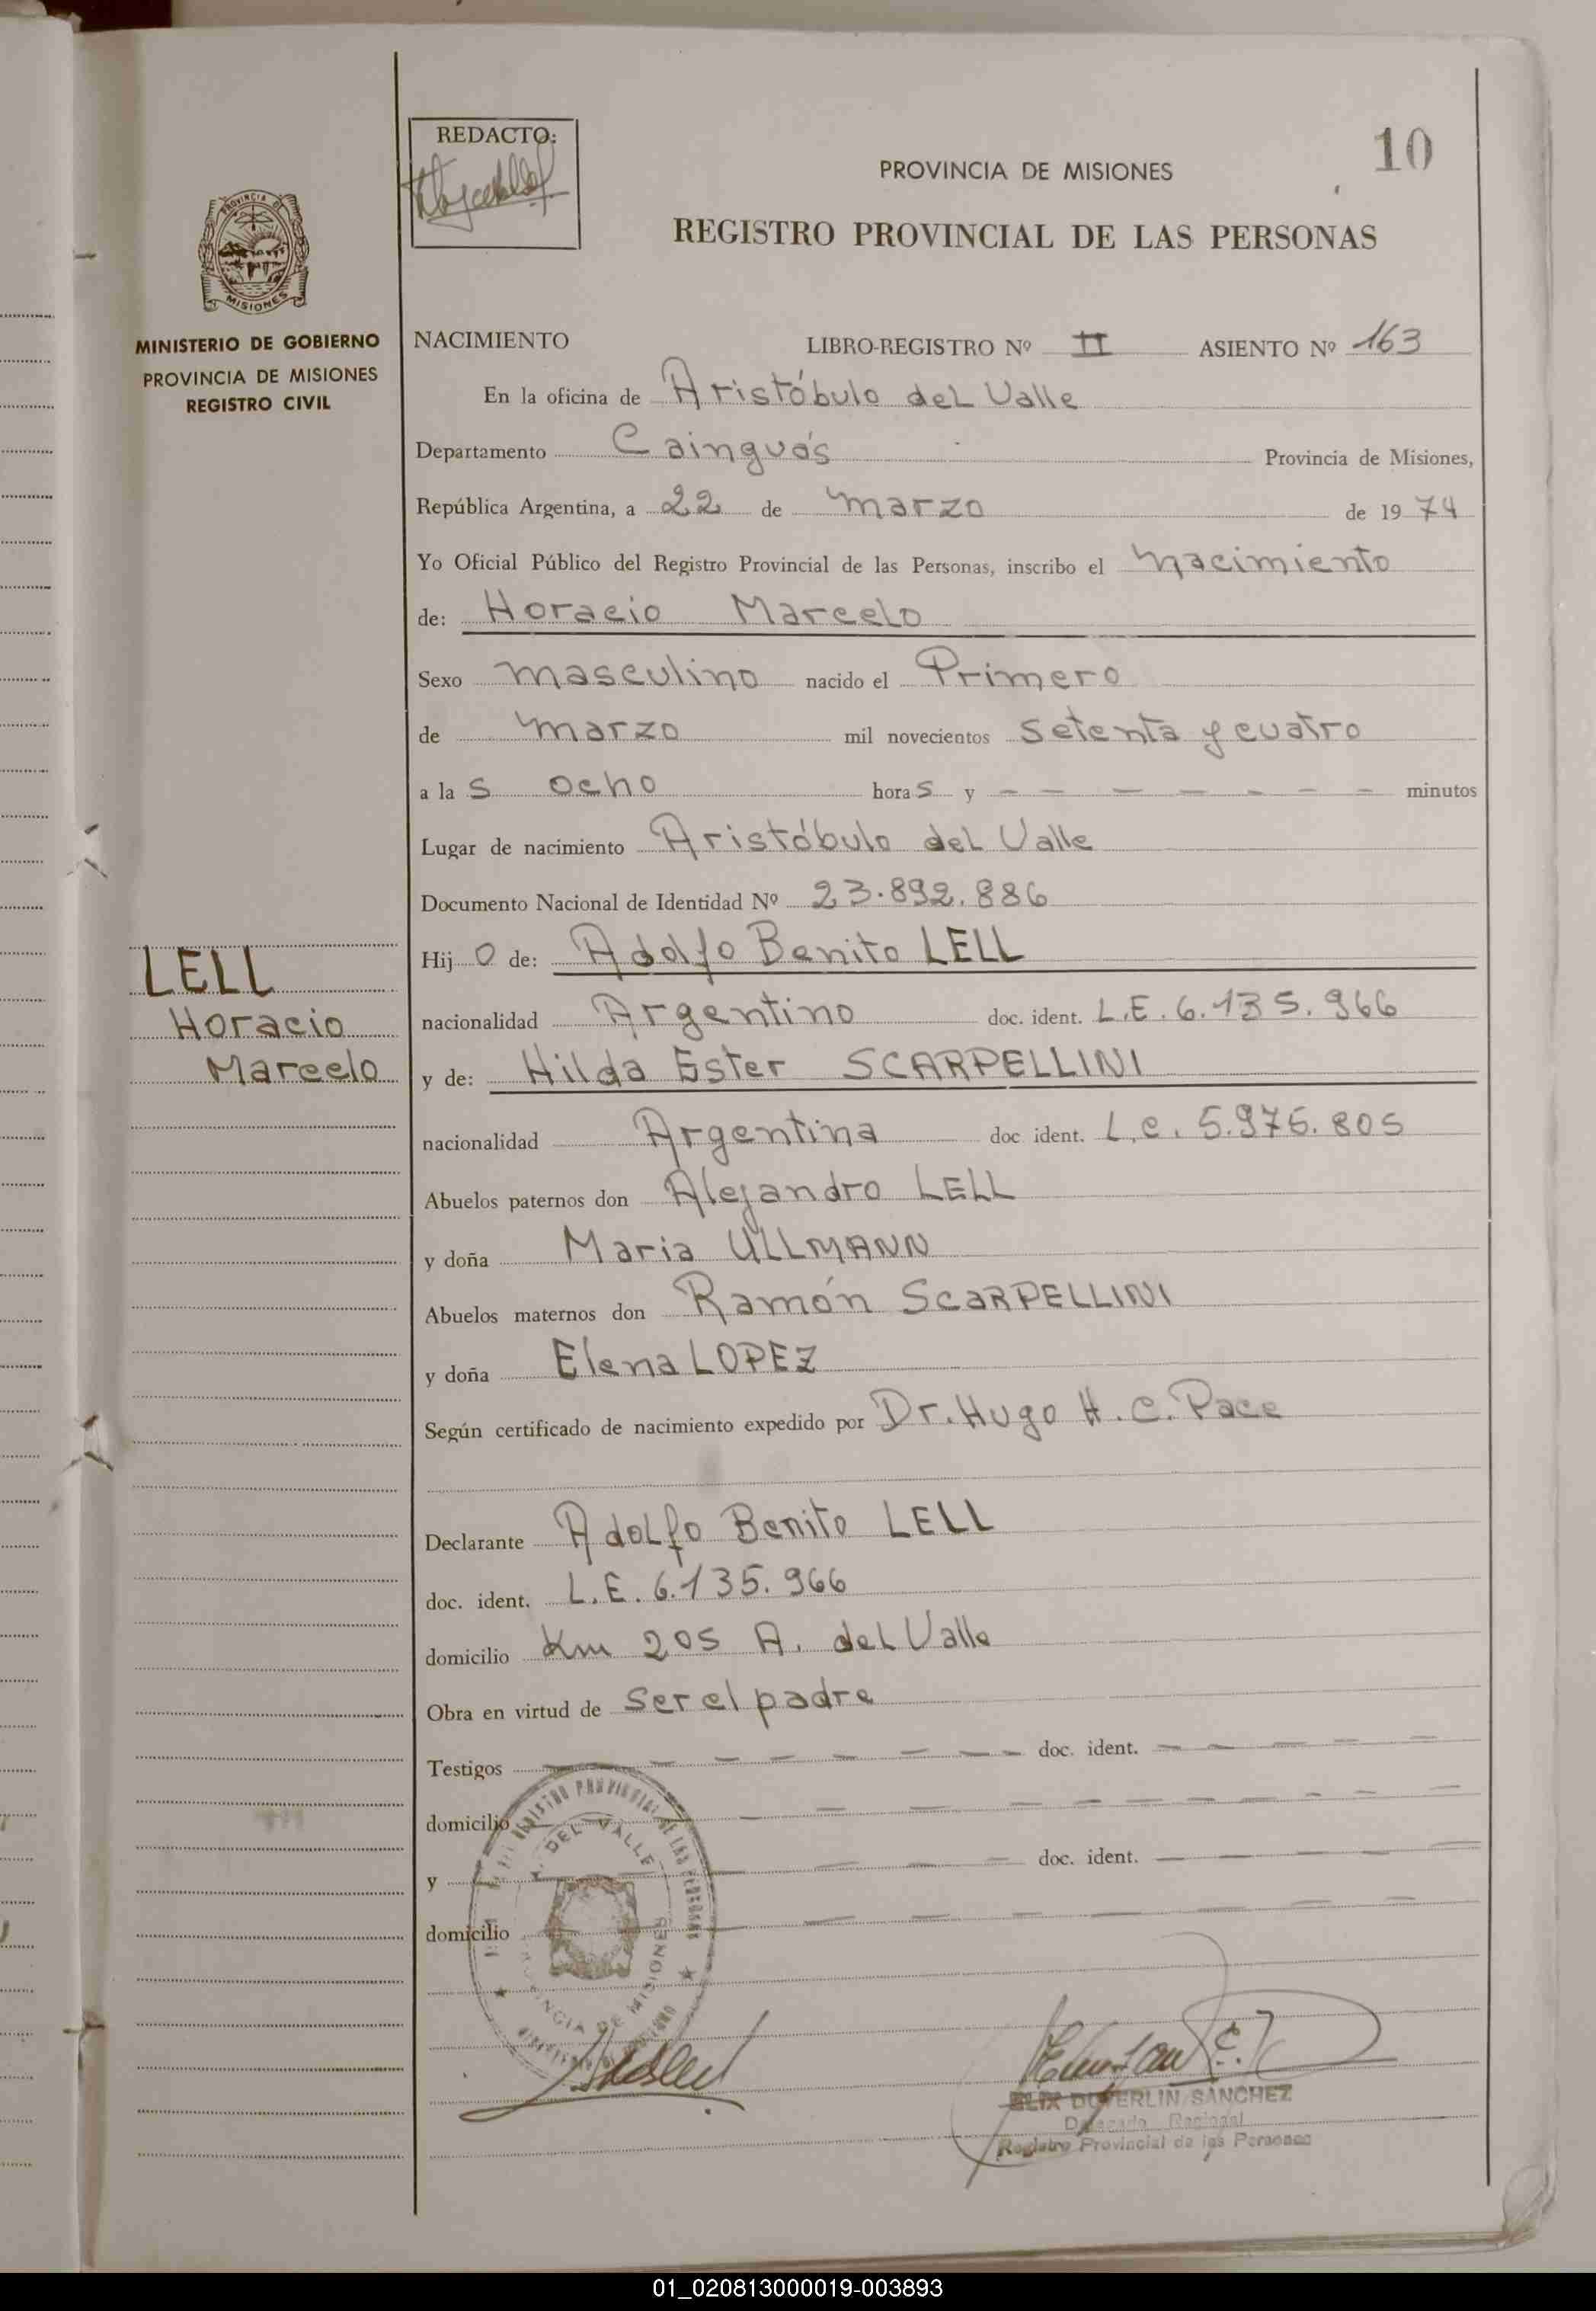 REDACTO:
10
PROVINCIA DE MISIONES
REGISTRO PROVINCIAL DE LAS PERSONAS
PROVINCIA DE
MISIONES
MINISTERIO DE GOBIERNO
PROVINCIA DE MISIONES
REGISTRO CIVIL
NACIMIENTO LIBRO-REGISTRO Nº II ASIENTO Nº 163
En la oficina de Aristóbulo del Valle
Departamento Cainguás Provincia de Misiones,
República Argentina, a 22 de marzo de 1974
Yo Oficial Público del Registro Provincial de las Personas, inscribo el nacimiento
de: Horacio Marcelo
Sexo masculino nacido el Primero
de marzo mil novecientos setenta y cuatro
a las ocho horas y - - - - - - - minutos
Lugar de nacimiento Aristóbulo del Valle
Documento Nacional de Identidad Nº 23.892.886
Hijo de: Adolfo Benito LELL
LELL
Horacio
Marcelo
nacionalidad Argentino doc. ident. L.E. 6.135.966
y de: Hilda Ester SCARPELLINI
nacionalidad Argentina doc ident. L.C. 5.976.805
Abuelos paternos don Alejandro LELL
y doña Maria ULLMANN
Abuelos maternos don Ramón SCARPELLINI
y doña Elena LOPEZ
Según certificado de nacimiento expedido por Dr. Hugo H. C. Pace
Declarante Adolfo Benito LELL
doc. ident. L.E. 6.135.966
domicilio Km 205 A. del Valle
Obra en virtud de ser el padre
Testigos - - - - - - doc. ident. - - - - -
domicilio - - - - - - - - -
y - - - - doc. ident. - - - -
domicilio - - - - - - -
REGISTRO PROVINCIAL DE LAS PERSONAS
A. DEL VALLE
PROVINCIA DE MISIONES
ELIX DUVERLIN SANCHEZ
Delegado Regional
Registro Provincial de las Personas
01_020813000019-003893